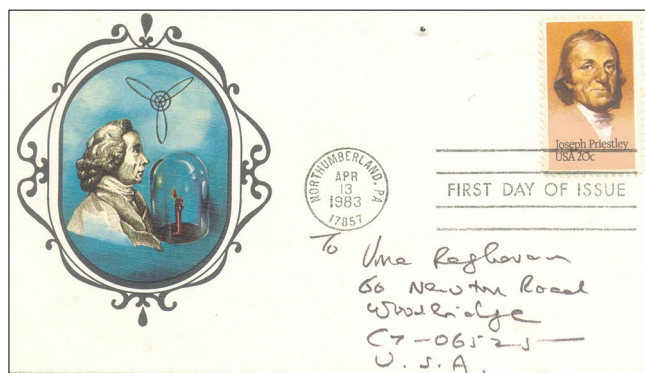 Joseph Priestley
USA 20c
NORTHUMBERLAND, PA
APR
13
1983
17857
FIRST DAY OF ISSUE
To
Uma Raghavan
60 Newton Road
Woodbridge
CT-06525
U.S.A.